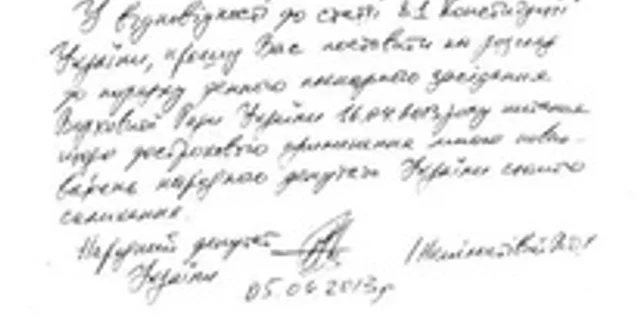 У відповідності до статті 81 Конституції
України, прошу Вас поставити на розгляд
до порядку денного пленарного засідання
Верховної Ради України 16.04 2013 року питання
щодо дострокового припинення мною повно-
важень народного депутата України
Народний депутат
України
05.04.2013р